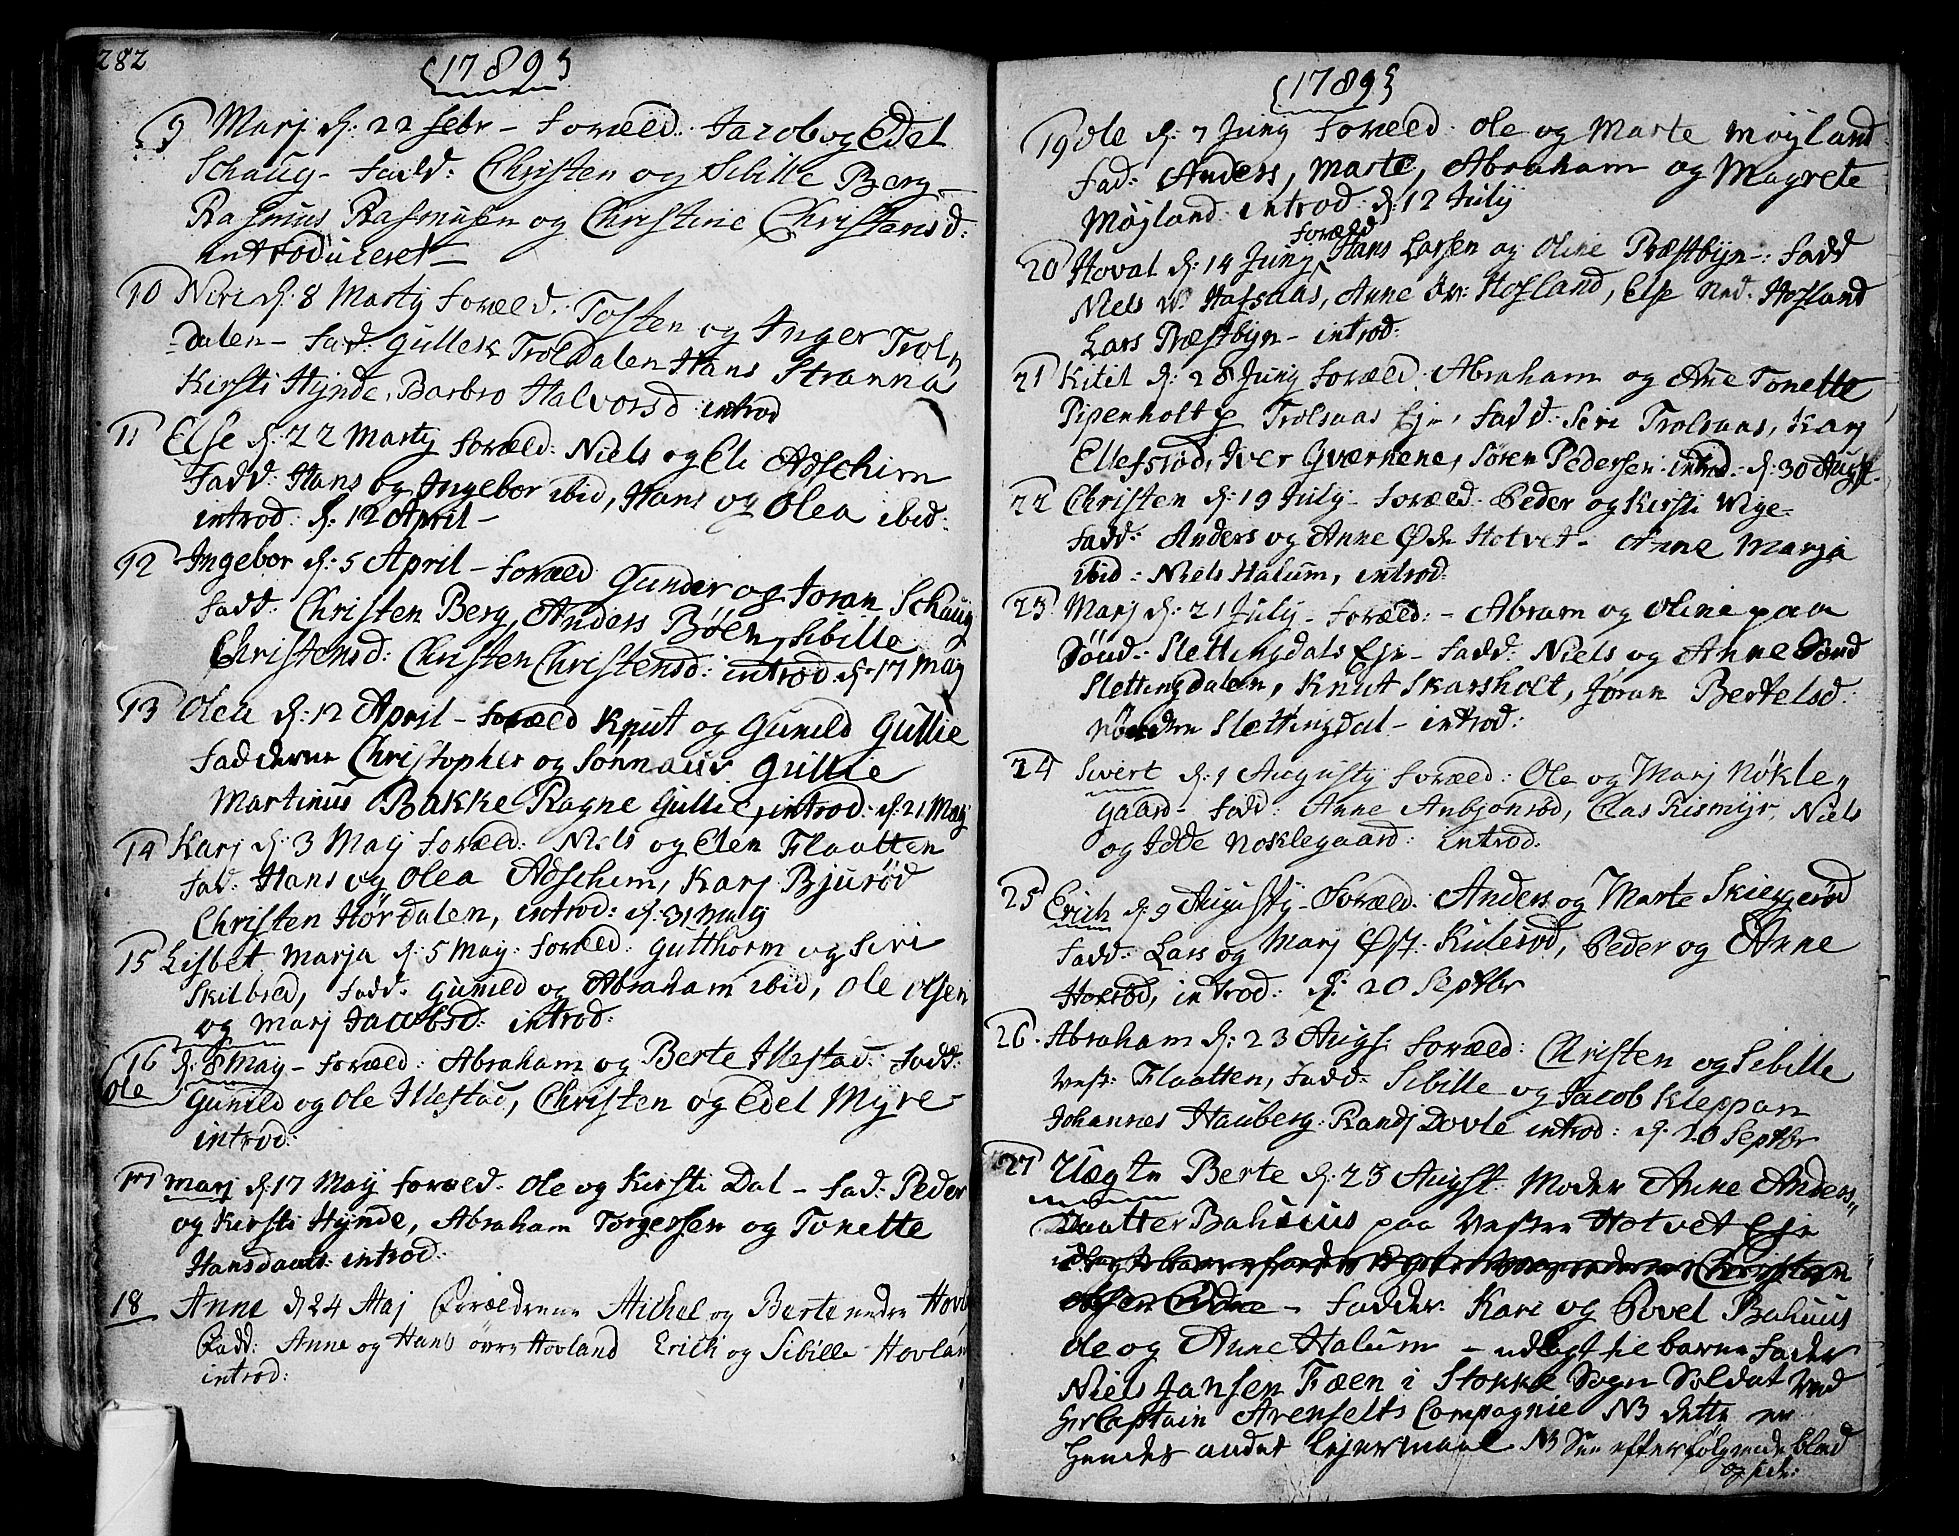 282
1789
9 Marj d: 22 febr – Foræld: Jacob og Edel
Schaug – Fadd: Christen og Sibille Berg –
Rasmus Rasmusen og Christine Christensd:
introduceret –
10 Siri d: 8 Martij Foræld: Tosten og Inger Trol,,
dalen – Fad: Gullek Troldalen Hans Stranna
Kirsti Hynde, Barbro Halvorsd introd
11 Else d: 22 Martij Foræld: Niels og Eli Adschim
Fadd: Hans og Ingebor ibid, Hans og Olea ibid:
introd: d: 12 April –
12 Ingebor d: 5 April – Foræld Gunder og Joran Schaug
Fadd: Christen Berg, Anders Böen, Sibille
Christensd: Christen Christensd: introd d: 17 Maij
13 Olea d: 12 April – Foræld Knut og Gunild Gullie
Fadderne Christopher og Sönnauv Gullie
Martinus Bakke Ragne Gullie, introd: d: 21 Maij
14 Karj d: 3 Maij Foræld: Niels og Elen Flaatten
Fad: Hans og Olea Adschem, Karj Bjurød
Christen Hørdalen, introd: d: 31 Maij
15 Lisbet Marja d: 5 May: Foræld: Gutthorm og Siri
Skilbred, Fadd: Gunild og Abraham ibid, Ole Olsen
og Marj Jacobsd: introd:
16 d: 8 May – Foræld: Abraham og Berte Illestad: Fadd:
Ole Gunild og Ole Illestad, Christen og Edel Myre –
introd:
17 Marj d: 17 Maij Foræld: Ole og Kirsti Dal – Fad: Peder
og Kirsti Hynde, Abraham Torgersen og Tonette
Hansdaat: introd:
18 Anne d 24 Maj Forældrene Michel og Berte nedre Hovl
Fadd: Anne og Hans övre Hovland Erich og Sibille Hovlan
introd:
1789
19 Ole d: 7 Junij Foræld: Ole og Marte Møjland
Fad: Anders, Marte, Abraham og Magrete
Møjland: introd: d: 12 Julij
Foræld
20 Hoval d: 14 Junij Hans Larsen og Oline Præstbyn –: Fadd
Niels W: Hafsaas, Anne öv: Hofland, Else Ned: Hofland
Lars Præstbyn – introd:
21 Kitil d: 28 Junij Foræld: Abraham og Ane Tonette
Pipenholt p Trolsaas Eje, Fadd: Siri Trolsaas, Karj
Ellefsröd, Iver Gværnene, Sören Pedersen introd: d: 30 Augst
22 Christen d: 19 July – Foræld: Peder og Kirsti Wige –
Fadd: Anders og Anne Östr Hotvet – Anne Marja
ibid: Niels Halum, introd:
23 Marj d: 21 July – Foræld: – Abram og Oline paa
Sönd: Slettingdals Eje – Fadd: Niels og Anne Sönd
Slettingdalen, Knut Skarsholt, Jøran Bertelsd:
Nördre Slettingdal – introd:
24 Sivert d: 9 Augusty Foræld: Ole og Marj Nökle,,
gaard – Fadd: Anne Anbjönröd, Clas Rismyr, Niels
og Idde Noklegaard: introd.
25 Erich d: 9 Augusty – Foræld: Anders og Marte Skieggeröd
Fadd: Lars og Marj Öst: Kuleröd, Peder og Anne
Horröd, introd: d: 20 Septbr
26 Abraham d: 23 Augs: Foræld: Christen og Sibille
Vest: Flaatten, Fadd: Sibille og Jacob Kleppan
Johannes Hauberg: Randj Dovle introd: d. 20 Septbr
27 Uægte Berte d: 23 Augst: Moder Anne Anders,,
Daatter Bahuus paa Vestre Hotvet Eje
– Fadder Kari og Povel Bahuus
Ole og Anne Halum – udlagt til barne Fader
Niels Jansen Fæen i Stokke Sogn Soldat ved
hr Captain Arenfelts Compagnie NB dette er
hendes andet Lejermaal NB See efterfölgende blad
og side: